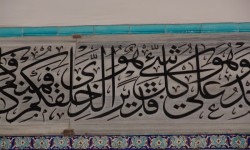 وهو على كل شئ قدير هو الذي خلقكم فمنكم